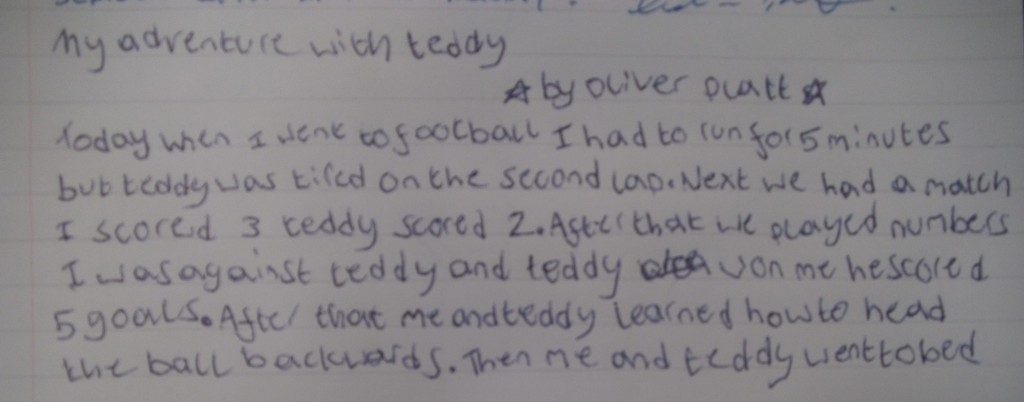 My adventure with teddy
☆ by Oliver Platt ☆
Today when I went to football I had to run for 5 minutes
but teddy was tired on the second lap. Next we had a match
I scored 3 teddy scored 2. After that we played numbers
I was against teddy and teddy won me he scored
5 goals. After that me and teddy learned how to head
the ball backwards. Then me and teddy went to bed